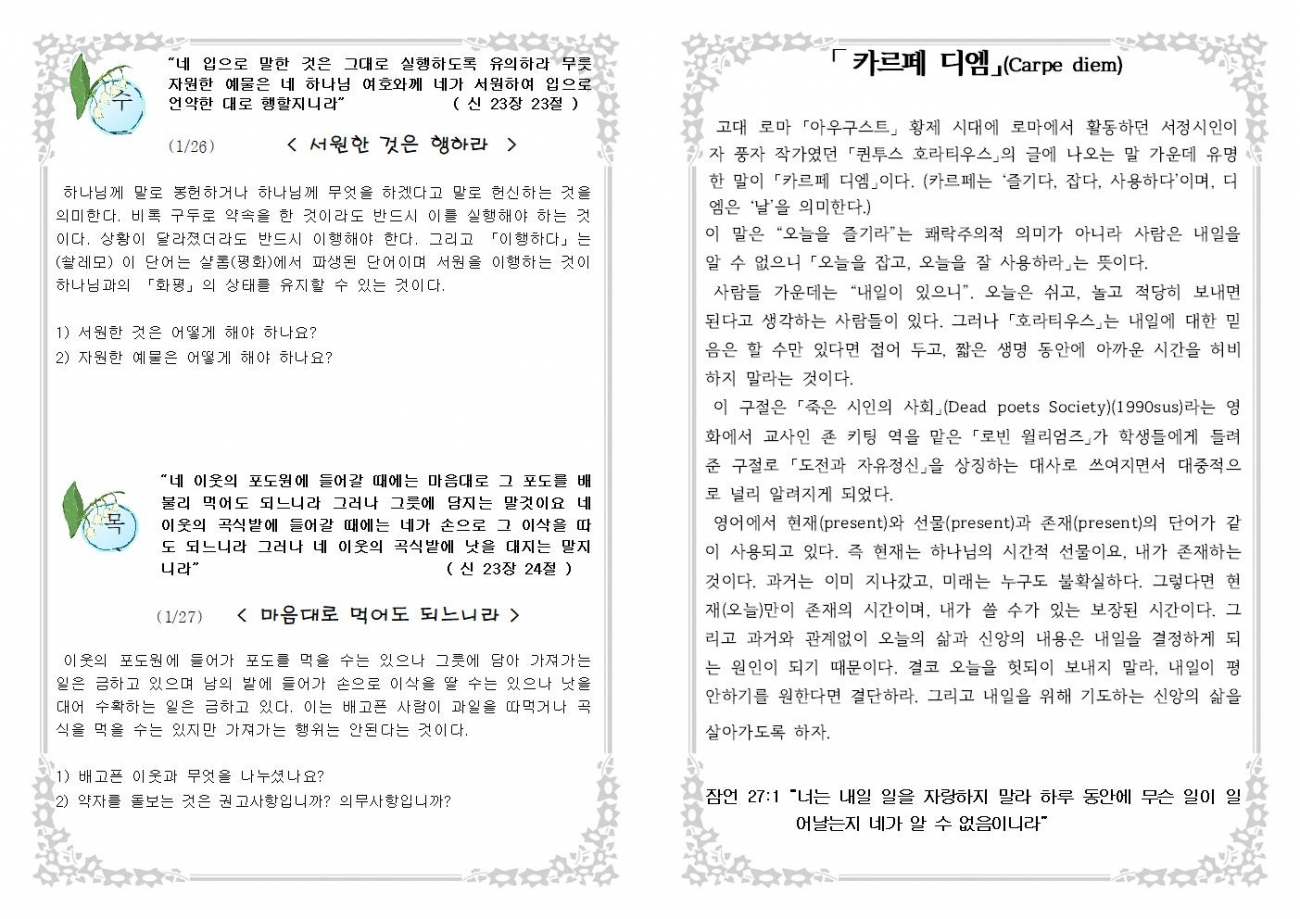 “네 입으로 말한 것은 그대로 실행하도록 유의하라 무릇
자원한 예물은 네 하나님 여호와께 네가 서원하여 입으로
언약한 대로 행할지니라” ( 신 23장 23절 )
수
(1/26) < 서원한 것은 행하라 >
하나님께 말로 봉헌하거나 하나님께 무엇을 하겠다고 말로 헌신하는 것을
의미한다. 비록 구두로 약속을 한 것이라도 반드시 이를 실행해야 하는 것
이다. 상황이 달라졌더라도 반드시 이행해야 한다. 그리고 「이행하다」는
(솰레모) 이 단어는 샬롬(평화)에서 파생된 단어이며 서원을 이행하는 것이
하나님과의 「화평」의 상태를 유지할 수 있는 것이다.
1) 서원한 것은 어떻게 해야 하나요?
2) 자원한 예물은 어떻게 해야 하나요?
“네 이웃의 포도원에 들어갈 때에는 마음대로 그 포도를 배
불리 먹어도 되느니라 그러나 그릇에 담지는 말것이요 네
이웃의 곡식밭에 들어갈 때에는 네가 손으로 그 이삭을 따
도 되느니라 그러나 네 이웃의 곡식밭에 낫을 대지는 말지
니라” ( 신 23장 24절 )
목
(1/27) < 마음대로 먹어도 되느니라 >
이웃의 포도원에 들어가 포도를 먹을 수는 있으나 그릇에 담아 가져가는
일은 금하고 있으며 남의 밭에 들어가 손으로 이삭을 딸 수는 있으나 낫을
대어 수확하는 일은 금하고 있다. 이는 배고픈 사람이 과일을 따먹거나 곡
식을 먹을 수는 있지만 가져가는 행위는 안된다는 것이다.
1) 배고픈 이웃과 무엇을 나누셨나요?
2) 약자를 돌보는 것은 권고사항입니까? 의무사항입니까?
「카르페 디엠」(Carpe diem)
고대 로마 「아우구스트」 황제 시대에 로마에서 활동하던 서정시인이
자 풍자 작가였던 「퀸투스 호라티우스」의 글에 나오는 말 가운데 유명
한 말이 「카르페 디엠」이다. (카르페는 ‘즐기다, 잡다, 사용하다’이며, 디
엠은 ‘날’을 의미한다.)
이 말은 “오늘을 즐기라”는 쾌락주의적 의미가 아니라 사람은 내일을
알 수 없으니 「오늘을 잡고, 오늘을 잘 사용하라」는 뜻이다.
사람들 가운데는 “내일이 있으니”. 오늘은 쉬고, 놀고 적당히 보내면
된다고 생각하는 사람들이 있다. 그러나 「호라티우스」는 내일에 대한 믿
음은 할 수만 있다면 접어 두고, 짧은 생명 동안에 아까운 시간을 허비
하지 말라는 것이다.
이 구절은 「죽은 시인의 사회」(Dead poets Society)(1990sus)라는 영
화에서 교사인 존 키팅 역을 맡은 「로빈 윌리엄즈」가 학생들에게 들려
준 구절로 「도전과 자유정신」을 상징하는 대사로 쓰여지면서 대중적으
로 널리 알려지게 되었다.
영어에서 현재(present)와 선물(present)과 존재(present)의 단어가 같
이 사용되고 있다. 즉 현재는 하나님의 시간적 선물이요, 내가 존재하는
것이다. 과거는 이미 지나갔고, 미래는 누구도 불확실하다. 그렇다면 현
재(오늘)만이 존재의 시간이며, 내가 쓸 수가 있는 보장된 시간이다. 그
리고 과거와 관계없이 오늘의 삶과 신앙의 내용은 내일을 결정하게 되
는 원인이 되기 때문이다. 결코 오늘을 헛되이 보내지 말라, 내일이 평
안하기를 원한다면 결단하라. 그리고 내일을 위해 기도하는 신앙의 삶을
살아가도록 하자.
잠언 27:1 “너는 내일 일을 자랑하지 말라 하루 동안에 무슨 일이 일
어날는지 네가 알 수 없음이니라”